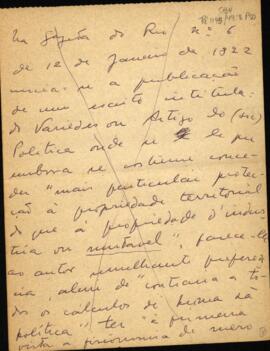 Na Gazeta do Rio nº 6
de 12 de Janeiro de 1822
inicia-se a publicação
de um escrito intitula-
do Variedes ou Artigo do (sic)
Politica onde se
se costuma conce-
der "mais particular protec-
ção à propriedade territorial
do que á propriedade d'indus-
tria ou mutavel", parece-lhe
ao autor semelhante preferen-
cia, alem de contraria a to-
dos os calculos di
politica" ter "á primeira
vista a fisionomia de mero